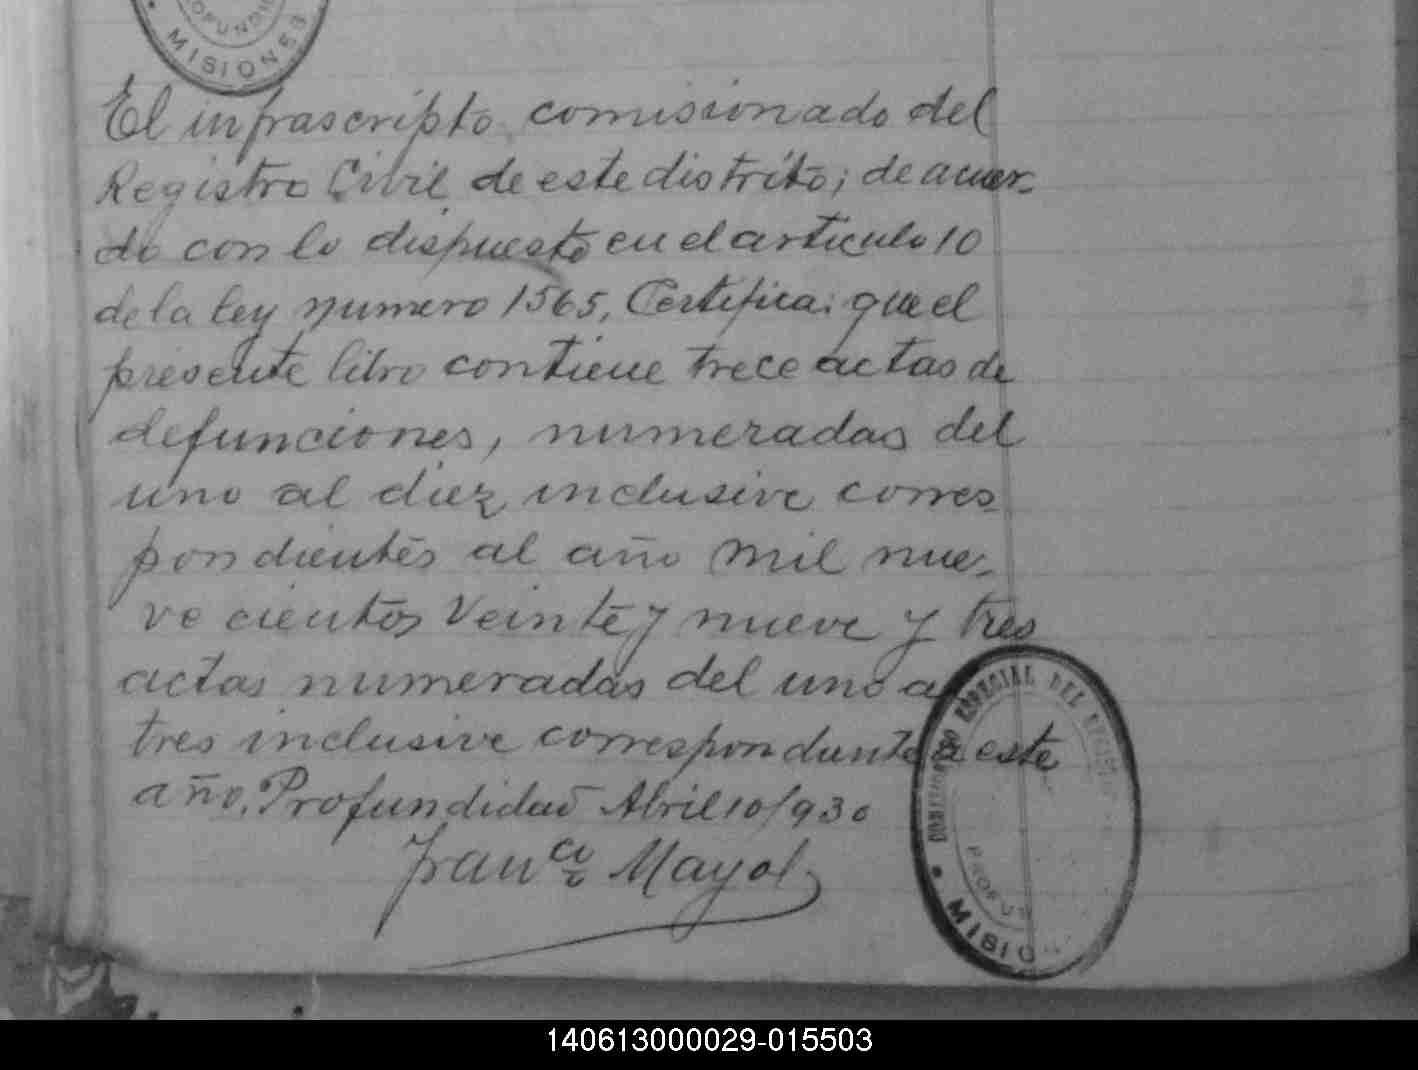 PROFUNDI
MISIONES
El infrascripto comisionado del
Registro Civil de este distrito; de acuer-
do con lo dispuesto en el articulo 10
de la ley numero 1565, Certifica: que el
presente libro contiene trece actas de
defunciones, numeradas del
uno al diez inclusive corres
pondientes al año mil nue-
ve cientos veinte y nueve y tres
actas numeradas del uno a
tres inclusive correspondiente a este
año. Profundidad Abril 10/930
Franco Mayol
ESPECIAL DEL
PROFUN
MISIO
140613000029-015503